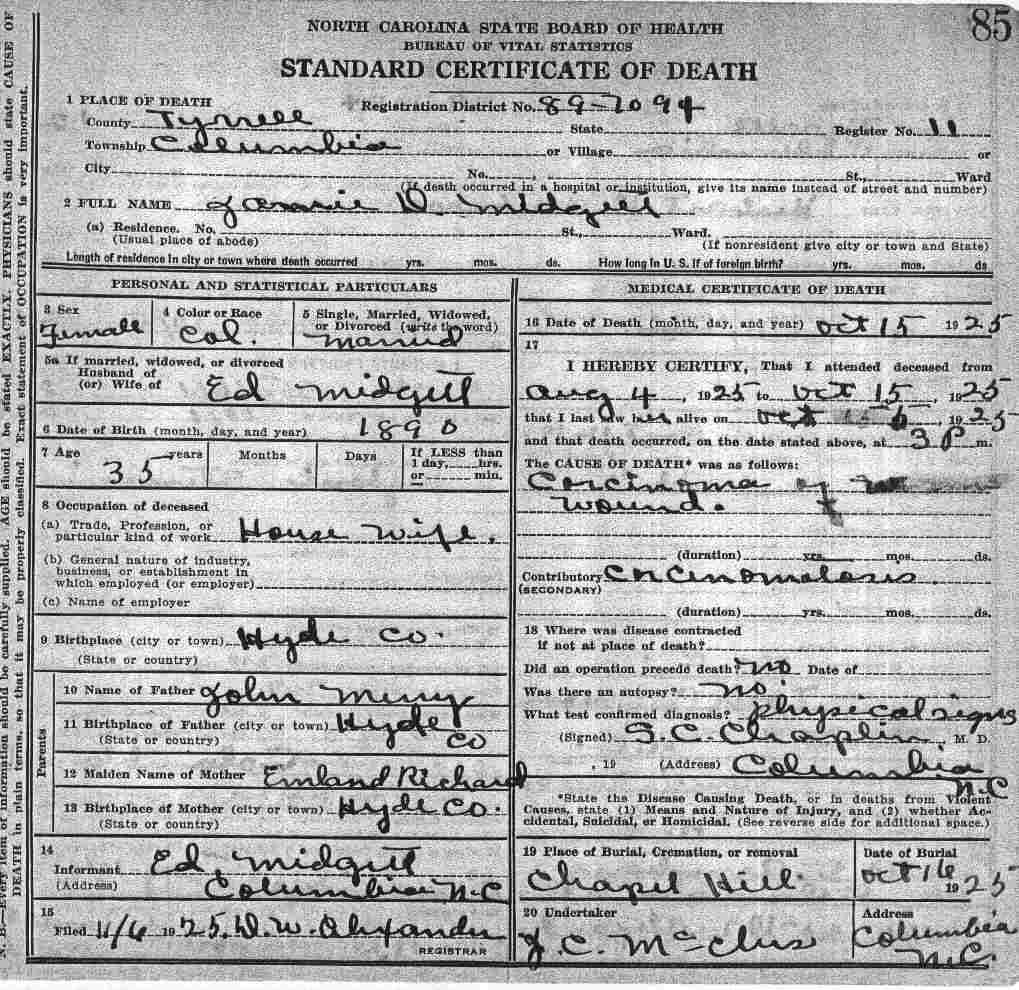 85
NORTH CAROLINA STATE BOARD OF HEALTH
BUREAU OF VITAL STATISTICS
STANDARD CERTIFICATE OF DEATH
1 PLACE OF DEATH Registration District No. 89-7094
County Tyrrell State Register No. 11
Township Columbia or Village or
City No. , St., Ward
(If death occurred in a hospital or institution, give its name instead of street and number)
2 FULL NAME D. Midgett
(a) Residence. No. St., Ward.
(Usual place of abode) (If nonresident give city or town and State)
Length of residence in city or town where death occurred yrs. mos. ds. How long in U. S. if of foreign birth? yrs. mos. ds.
PERSONAL AND STATISTICAL PARTICULARS
3 Sex 4 Color or Race 5 Single, Married, Widowed,
or Divorced (write the word)
Female Col. Married
5a If married, widowed, or divorced
Husband of
(or) Wife of Ed Midgett
6 Date of Birth (month, day, and year) 1890
7 Age years Months Days If LESS than
1 day, hrs.
or min.
35
8 Occupation of deceased
(a) Trade, Profession, or
particular kind of work House wife.
(b) General nature of industry,
business, or establishment in
which employed (or employer)
(c) Name of employer
9 Birthplace (city or town) Hyde Co.
(State or country)
Parents
10 Name of Father John
11 Birthplace of Father (city or town) Hyde
(State or country) Co
12 Maiden Name of Mother Richard
13 Birthplace of Mother (city or town) Hyde Co.
(State or country)
14
Informant Ed. Midgett
(Address) Columbia N.C
15
Filed 11/6 1925. D. W. Alexander
REGISTRAR
MEDICAL CERTIFICATE OF DEATH
16 Date of Death (month, day, and year) Oct 15 1925
17
I HEREBY CERTIFY, That I attended deceased from
Aug 4, 1925 to Oct 15, 1925
that I last saw her alive on Oct 15, 1925
and that death occurred, on the date stated above, at 3 P m.
The CAUSE OF DEATH* was as follows:
Corcinoma of
wound.
(duration) yrs. mos. ds.
Contributory Corcinomatosis
(SECONDARY)
(duration) yrs. mos. ds.
18 Where was disease contracted
if not at place of death?
Did an operation precede death? no Date of
Was there an autopsy? no
What test confirmed diagnosis? physical signs
(Signed) S. C. Chaplin, M. D.
, 19 (Address) Columbia
N.C
*State the Disease Causing Death, or in deaths from Violent
Causes, state (1) Means and Nature of Injury, and (2) whether Ac-
cidental, Suicidal, or Homicidal. (See reverse side for additional space.)
19 Place of Burial, Cremation, or removal Date of Burial
Chapel Hill. Oct 16 1925
20 Undertaker Address
J. C. Columbia
N.C.
N. B.—Every item of information should be carefully supplied. AGE should be stated EXACTLY. PHYSICIANS should state CAUSE OF
DEATH in plain terms, so that it may be properly classified. Exact statement of OCCUPATION is very important.